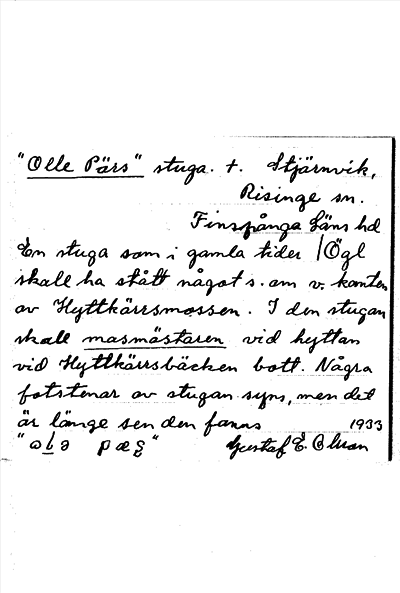 "Olle Pärs" stuga. t. Stjärnvik,
Risinge sn.
Finspånga Läns hd
En stuga som i gamla tider /Ögl
skall ha stått något s. om v. kanten
av Hyttkärrsmossen. I den stugan
skall masmästaren vid hyttan
vid Hyttkärrsbäcken bott. Några
fotstenar av stugan syns, men det
är länge sen den fanns 1933
Gustaf E.